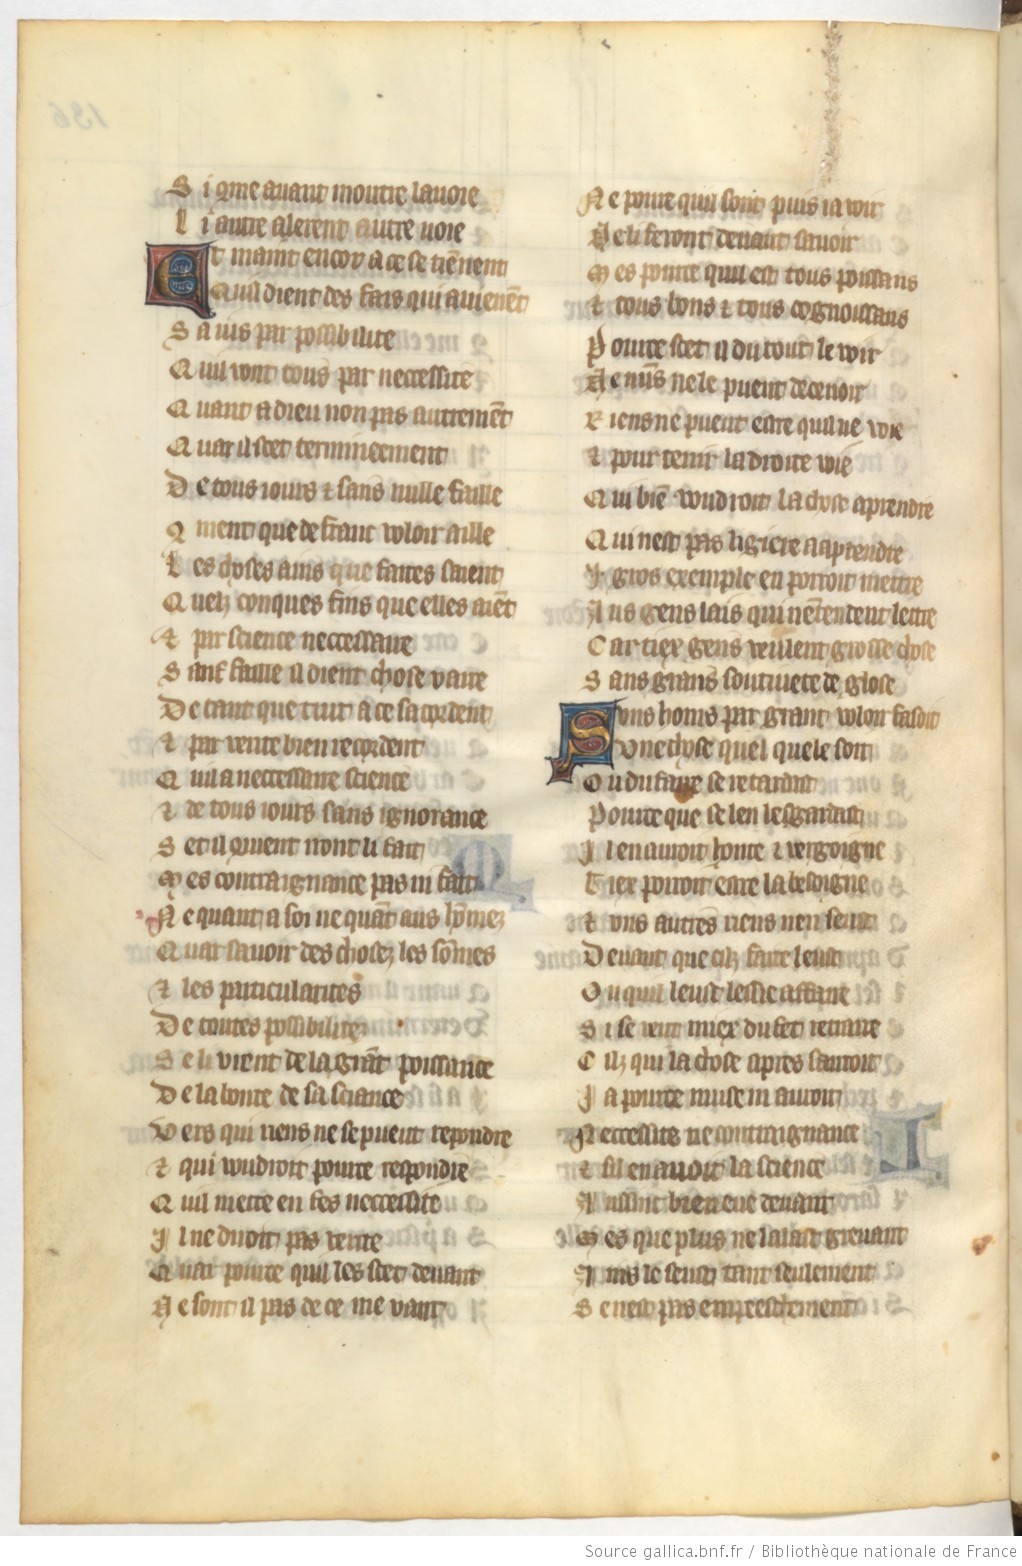 S i 9me auant moutre la uoie
L i autre alerent autre uoie
Et maint encor a ce se tiẽnent
Q uil dient des fais qui auienẽt
S a uis par possibilite
Q uil vont tous par neccessite
Q uant a dieu non pas autremẽt
Q uar il scet termineement
D e tous iours ⁊ sans nulle faille
9 ment que de franc voloir aille
L es choses ains que faites soient
Q uelz conques fins que elles aiẽt
⁊ par science neccessaire
S anz faille il dient chose voire
D e tant que tuit a ce sacordent
⁊ par verite bien recordent
Q uil a neccessaire science
⁊ de tous iours sans ignorance
S et il 9ment iront li fait
M es contraignance pas ni fait
N e quant a soi ne quãt aus hõmez
Q uar sauoir des chosez les sõmes
⁊ les particularites
D e toutes possibilitez
S e li vient de la grãt poissance
D e la bonte de sa sciance
V ers qui riens ne se puent repondre
⁊ qui voudroit pource respondre
Q uil mette en fes neccessite
I l ne diroit pas verite
Q uar pource quil les scet deuant
N e sont il pas de ce me vant
N e pource quil sont puis ia voir
N e li feront deuant sauoir
M es pource quil est tous poissans
⁊ tous bons ⁊ tous cognoissans
P ource scet il du tout le voir
N e nuls ne le puent deceuoir
R iens ne puent estre quil ne voie
⁊ pour tenir la droite voie
Q ui bien voudroit la chose aprendre
Q ui nest pas ligiere a aprendre
I gros exemple en porroit mettre
A us gens lais qui nẽtendent lettre
C ar tiex gens veulent grosse chose
S ans grans soutiuete de glose
Suns homs par grant voloir fasoit
V ne chose quel quele soit
O u du faire se retardast
P ource que se len lesgardast
I l en auroit honte ⁊ vergoigne
T iex porroit estre la besoigne
⁊ uns autres riens nen seust
D euant que cilz faite leust
O u quil leust lessie a faire
S i se veut miex du fet retraire
C ilz qui la chose apres sauroit
I a pource mise ni auroit
N eccessite ne contraignance
⁊ sil en auoit la science
A ussint bien eue deuant
M es que plus ne lalast greuant
A ins le seust tant seulement
S e nest pas empeeschement